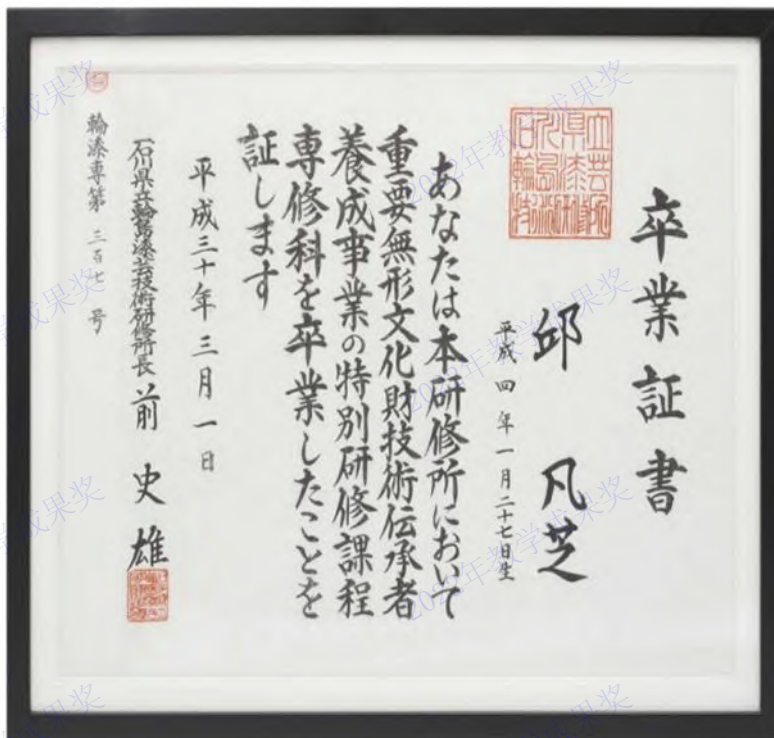 卒業証書
邱 凡芝
平成四年一月二十七日生
あなたは本研修所において
重要無形文化財技術伝承者
養成事業の特別研修課程
専修科を卒業したことを
証します
平成三十年三月一日
石川県立輪島漆芸技術研修所長 前 史雄
輪漆専第 三百七 号
2022年教学成果奖